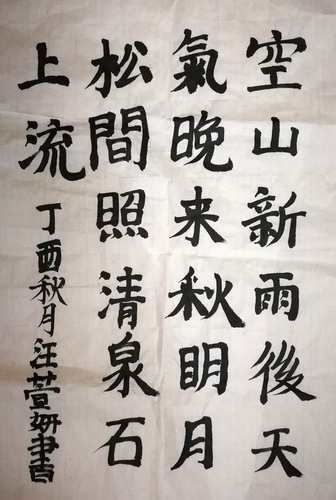 空山新雨後天
氣晚来秋明月
松間照清泉石
上流
丁酉秋月汪萱妍書